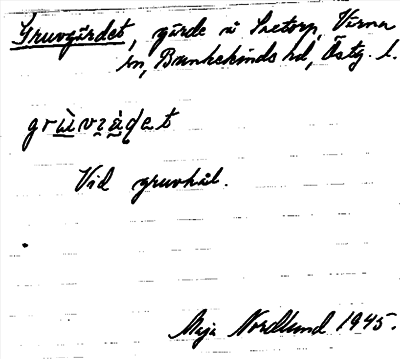 Gruvgärdet, gärde å Sætorp, Värna
sn, Bankekinds hd, Östg. l.
grùvɜà̤ḍet
Vid gruvhål.
Maja Nordlund 1945.